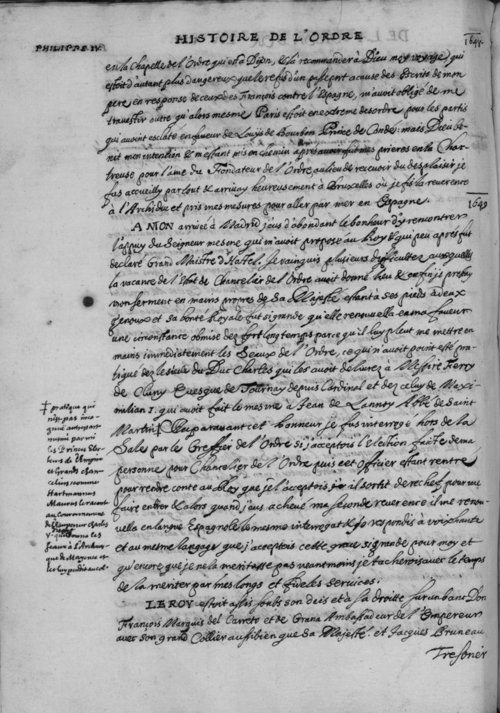 HISTOIRE DE L'ORDRE
PHILIPPE IV.
164
en la Chapelle de l'Ordre qui est à Dijon, & là recommander à Dieu moy voyage) qui
estoit d'autant plus dangereux que le refus d'un passeport a cause des Escrits de mon
pere en response de ceux des François contre l'Espagne, m'avoit obligé de me
travestir outre qu'alors mesme Paris estoit en extreme desordre pour les partis
qui avoient esclaté en faueur de Louis de Bourbon Prince de Conde: mais Dieu be-
nit mon intention & m'estant mis en chemin apres auoir fait mes prieres en la Char-
treuse pour l'ame du Fondateur de l'Ordre au lieu de receuoir du desplaisir je
fus accueilly par tout & arriuay heureusement à Bruxelles où je fis la reuerence
à l'Archiduc et pris mes mesures pour aller par mer en Espagne.
1649
A MON arriuée à Madrid j'eus d'abondant le bonheur d'y rencontrer
l'appuy du Seigneur mesme qui m'avoit proposé au Roy & qui peu apres fut
declaré Grand Maistre d'Hostel. Je vainquis plusieurs difficultez ausquelles
la vacance de l'Estat de Chancelier de l'Ordre auoit donné lieu & enfin je prestay
mon serment en mains propres de Sa Majesté estant à ses pieds à deux
genoux et sa bonté Royale fut si grande qu'elle renouuella en ma faueur
une circonstance obmise dez fort long temps parce qu'il luy pleut me mettre en
mains immediatement les Seaux de l'Ordre, ce qui n'auoit point esté pra-
tiqué dez le siecle du Duc Charles qui les auoit deliurez à Messire Ferry
de Cluny Euesque de Tournay depuis Cardinal et dez celuy de Maxi-
milian I. qui auoit fait le mesme à Jean de Lannoy Abbé de Saint
Martin‡ Auparauant cet honneur je fus interrogé hors de la
Sale par le Greffier de l'Ordre si j'acceptois l'election faicte de ma
personne pour Chancelier de l'Ordre puis cet officier estant rentré
pour rendre conte au Roy que je l'acceptois il sortit de rechef pour me
faire entrer & alors quand j'eus acheué ma seconde reuerence il me renou-
uella en langue Espagnole le mesme interrogat & je respondis à voix haute
et au mesme langage que j'acceptois ceste grace si grande pour moy et
qu'encore que je ne la meritasse pas neantmoins je tacherois auec le temps
de la meriter par mes longs et fideles seruices.
‡ pratique qui
n'est pas incon-
gnue autre part
mesme parmi
les Princes Ele-
cteurs de l'Empire
et Grands chan-
celiers comme
Hartmannus
Maurus
au couronnement
de l'Empereur Charles
V.
seaux à l'Archeue-
que de Mayence
LE ROY estoit assis soubs son dais et à sa droitte sur un banc Don
François Marquis del Carreto et de Grana Ambassadeur de l'Empereur
auec son grand Collier aussi bien que Sa Majesté. et Jacques Bruneau
Tresorier